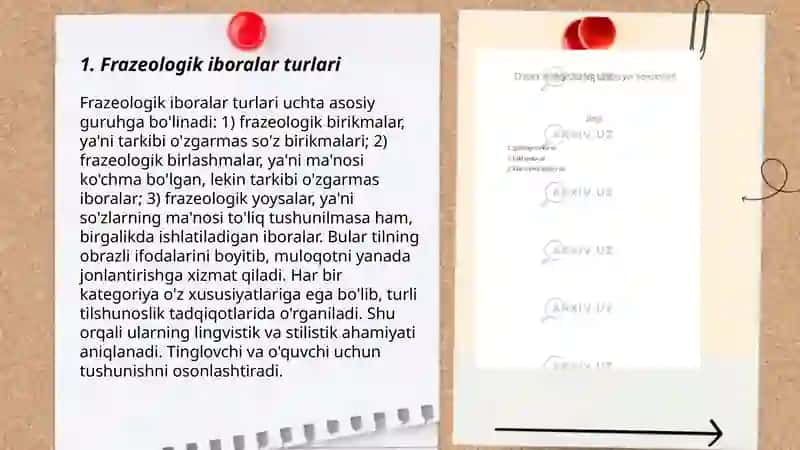 1. Frazeologik iboralar turlari
Frazeologik iboralar turlari uchta asosiy
guruhga bo'linadi: 1) frazeologik birikmalar,
ya'ni tarkibi o'zgarmas so'z birikmalari; 2)
frazeologik birlashmalar, ya'ni ma'nosi
ko'chma bo'lgan, lekin tarkibi o'zgarmas
iboralar; 3) frazeologik yoysalar, ya'ni
so'zlarning ma'nosi to'liq tushunilmasa ham,
birgalikda ishlatiladigan iboralar. Bular tilning
obrazli ifodalarini boyitib, muloqotni yanada
jonlantirishga xizmat qiladi. Har bir
kategoriya o'z xususiyatlariga ega bo'lib, turli
tilshunoslik tadqiqotlarida o'rganiladi. Shu
orqali ularning lingvistik va stilistik ahamiyati
aniqlanadi. Tinglovchi va o'quvchi uchun
tushunishni osonlashtiradi.
ARXIV.UZ
ARXIV.UZ
ARXIV.UZ
ARXIV.UZ
ARXIV.UZ